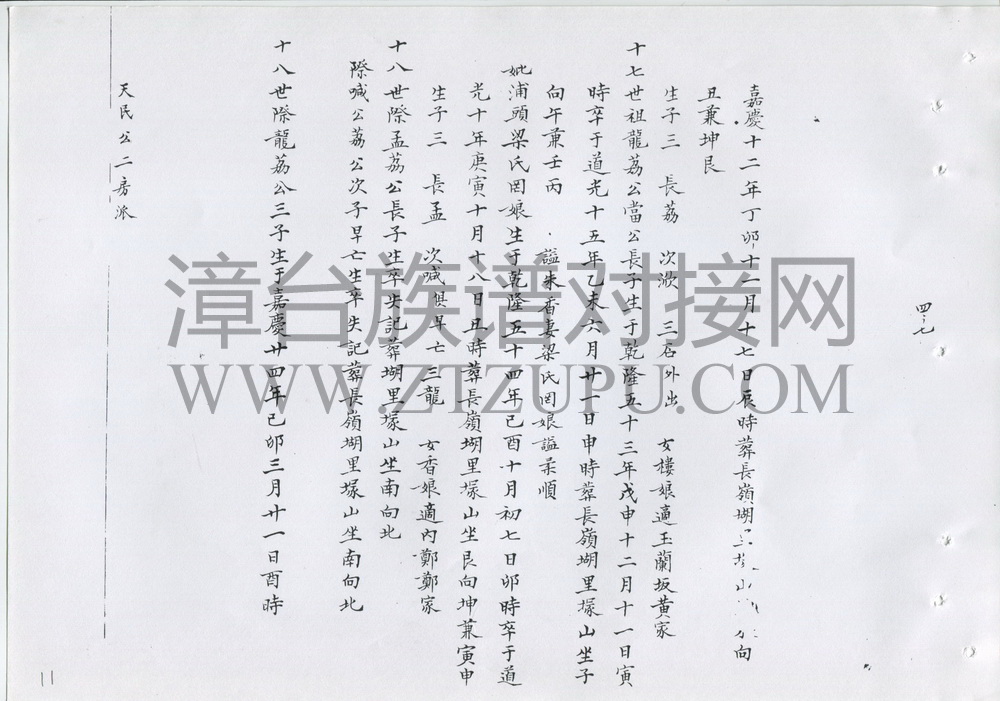 四·七
嘉慶十二年丁卯十二月十七日辰時葬長嶺湖 山 向
丑兼坤艮
生子三 長荔 次 三石外出 女樓娘適玉蘭坂黃家
十七世祖龍荔公當公長子生于乾隆五十三年戊申十二月十一日寅
時卒于道光十五年乙未六月廿一日申時葬長嶺湖里塚山坐子
向午兼壬丙 謚朱香妻梁氏罔娘謚柔順
妣浦頭梁氏罔娘生于乾隆五十四年己酉十月初七日卯時卒于道
光十年庚寅十月十八日丑時葬長嶺湖里塚山坐艮向坤兼寅申
生子三 長孟 次喊俱早亡 三龍 女香娘適內鄭鄭家
十八世際孟荔公長子生卒失記葬湖里塚山坐南向北
際喊公荔公次子早亡生卒失記葬長嶺湖里塚山坐南向北
十八世際龍荔公三子生于嘉慶廿四年己卯三月廿一日酉時
天民公二房派
11
漳台族谱对接网
WWW.ZTZUPU.COM